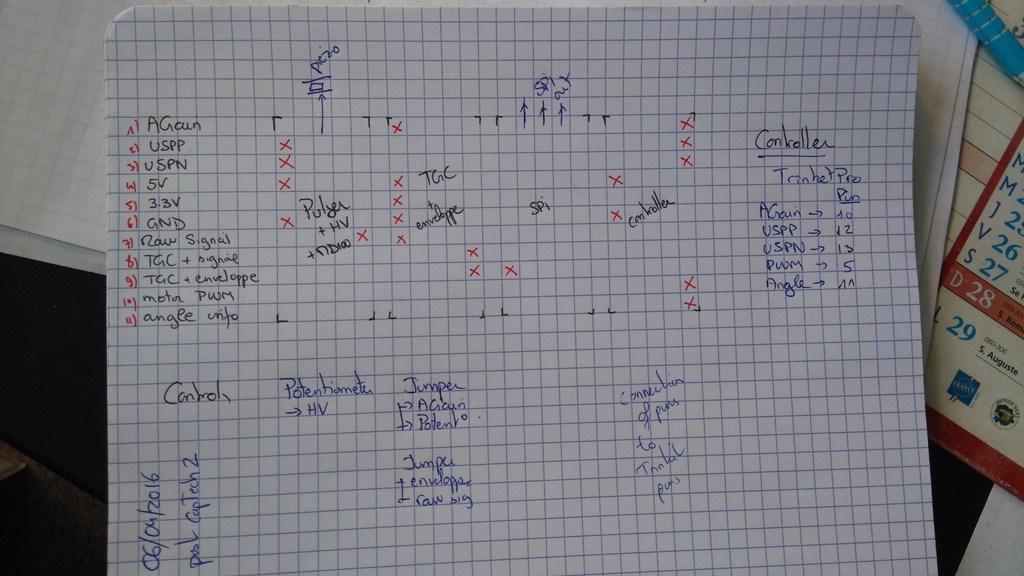 Piezo
SPi
1) AGain
2) USPP
3) USPN
4) 5V
5) 3.3V
6) GND
7) Raw Signal
8) TGC + signal
9) TGC + enveloppe
10) motor PWM
11) angle info
Pulser
+ HV
TGC
+
enveloppe
SPi
controller
Controller
Trinket Pro
Pin
AGain → 10
USPP → 12
USPN → 13
PWM → 5
Angle → 11
Controls
Potentiometer
→ HV
Jumper
→ AGain
→ Potent°.
Jumper
+ enveloppe
raw sig
Connection
of pins
to
Trinket
pins
06/04/2016
post CapTech 2
M
M
J
V 26
S 27
D 28
29
S. Auguste